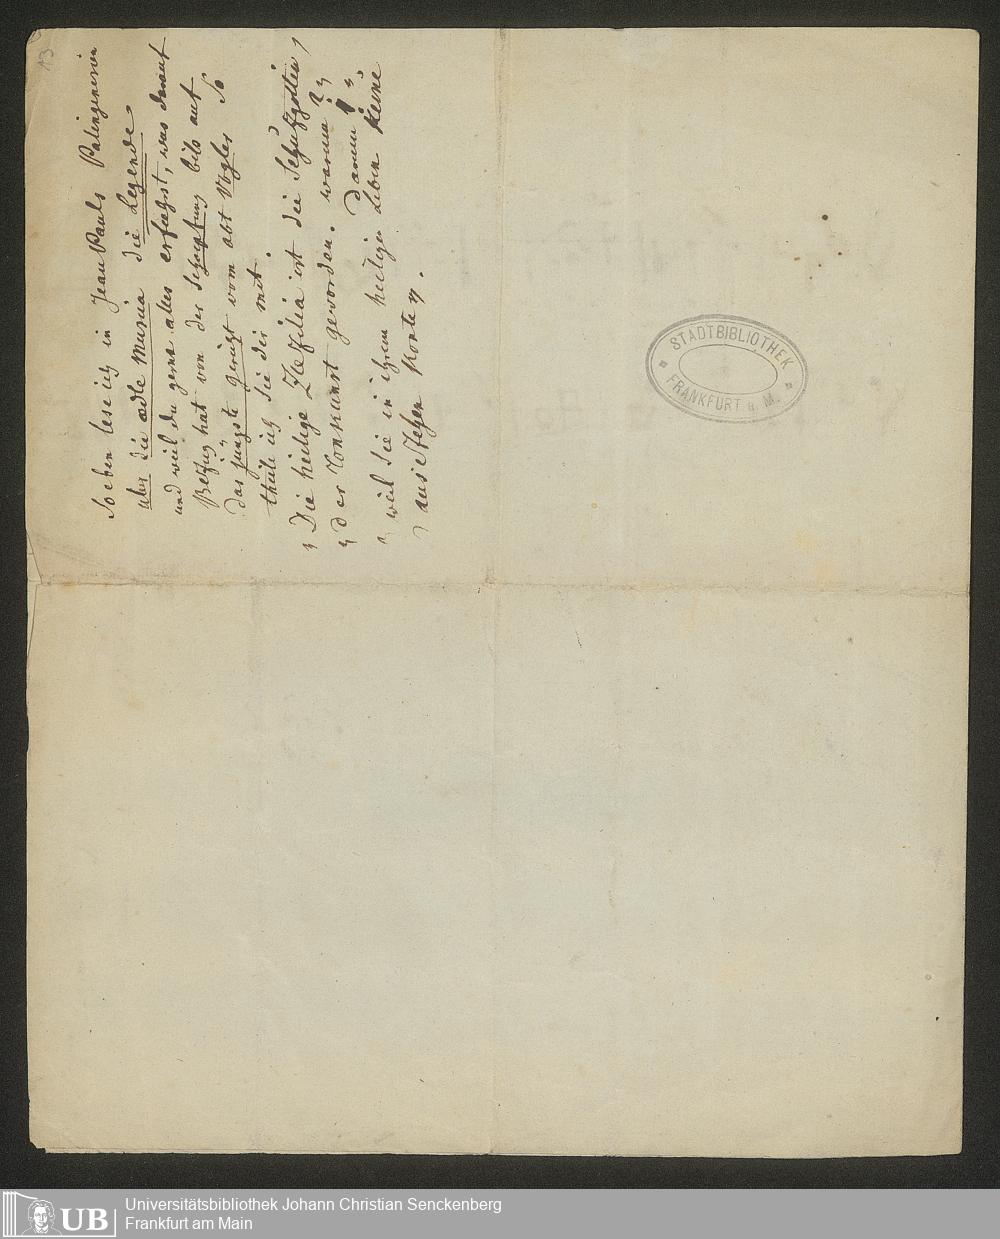 So eben lese ich in Jean Pauls Palingenesien
über die edle Musica die Legende
und weil du gerne alles erfährst, was darauf
Bezug hat von der Schöpfung bis auf
das jüngste gericht vom abt Vogler so
theile ich sie dir mit.
„Die heilige Zäzilia ist die Schuzgöttin
„der Tonkunst geworden. warum?
„weil sie in ihrem heiligen leben keine
„ausstehen konte".
13
STADTBIBLIOTHEK
FRANKFURT a. M.
UB
Universitätsbibliothek Johann Christian Senckenberg
Frankfurt am Main